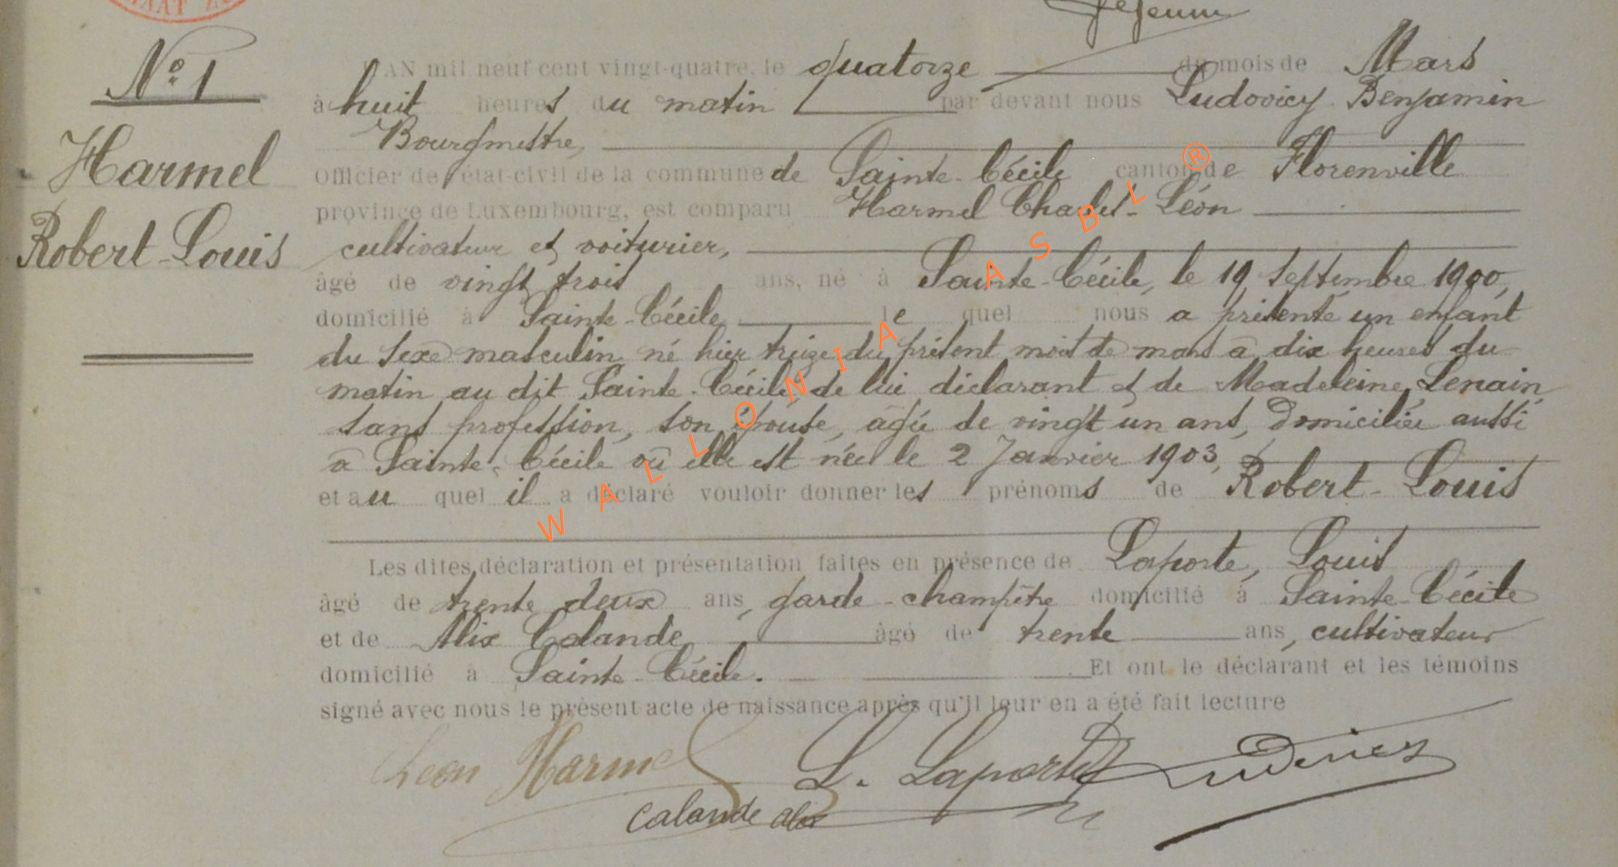 N° 1
Harmel
Robert-Louis
L'AN mil neuf cent vingt-quatre, le quatorze du mois de Mars
à huit heures du matin par devant nous Ludovicy Benjamin
Bourgmestre,
Officier de l'état-civil de la commune de Sainte-Cécile canton de Florenville
province de Luxembourg, est comparu Harmel Charles-Léon
cultivateur et voiturier,
âgé de vingt trois ans, né à Sainte-Cécile, le 19 septembre 1900,
domicilié à Sainte-Cécile, le quel nous a présenté un enfant
du sexe masculin né hier treize du présent mois de mars à dix heures du
matin au dit Sainte-Cécile de lui déclarant et de Madeleine Lenain,
sans profession, son épouse, âgée de vingt un ans, Domiciliée aussi
à Sainte-Cécile où elle est née le 2 Janvier 1903,
et au quel il a déclaré vouloir donner les prénoms de Robert-Louis
Les dites déclaration et présentation faites en présence de Laporte, Louis
âgé de trente deux ans, garde-champêtre domicilié à Sainte-Cécile
et de Alix Calande âgé de trente ans, cultivateur
domicilié à Sainte-Cécile. Et ont le déclarant et les témoins
signé avec nous le présent acte de naissance après qu'il leur en a été fait lecture
Léon Harmel L. Laporte
Calande alix
WALLONIA ASBL ®